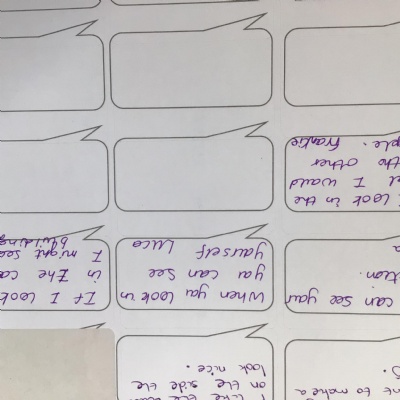 to make a
I like the
on the side the
look nice.
can see you
When you look in
you can see
yourself Luca
If I look
in the
I might see
building
I look in the
I would
other
Frankie